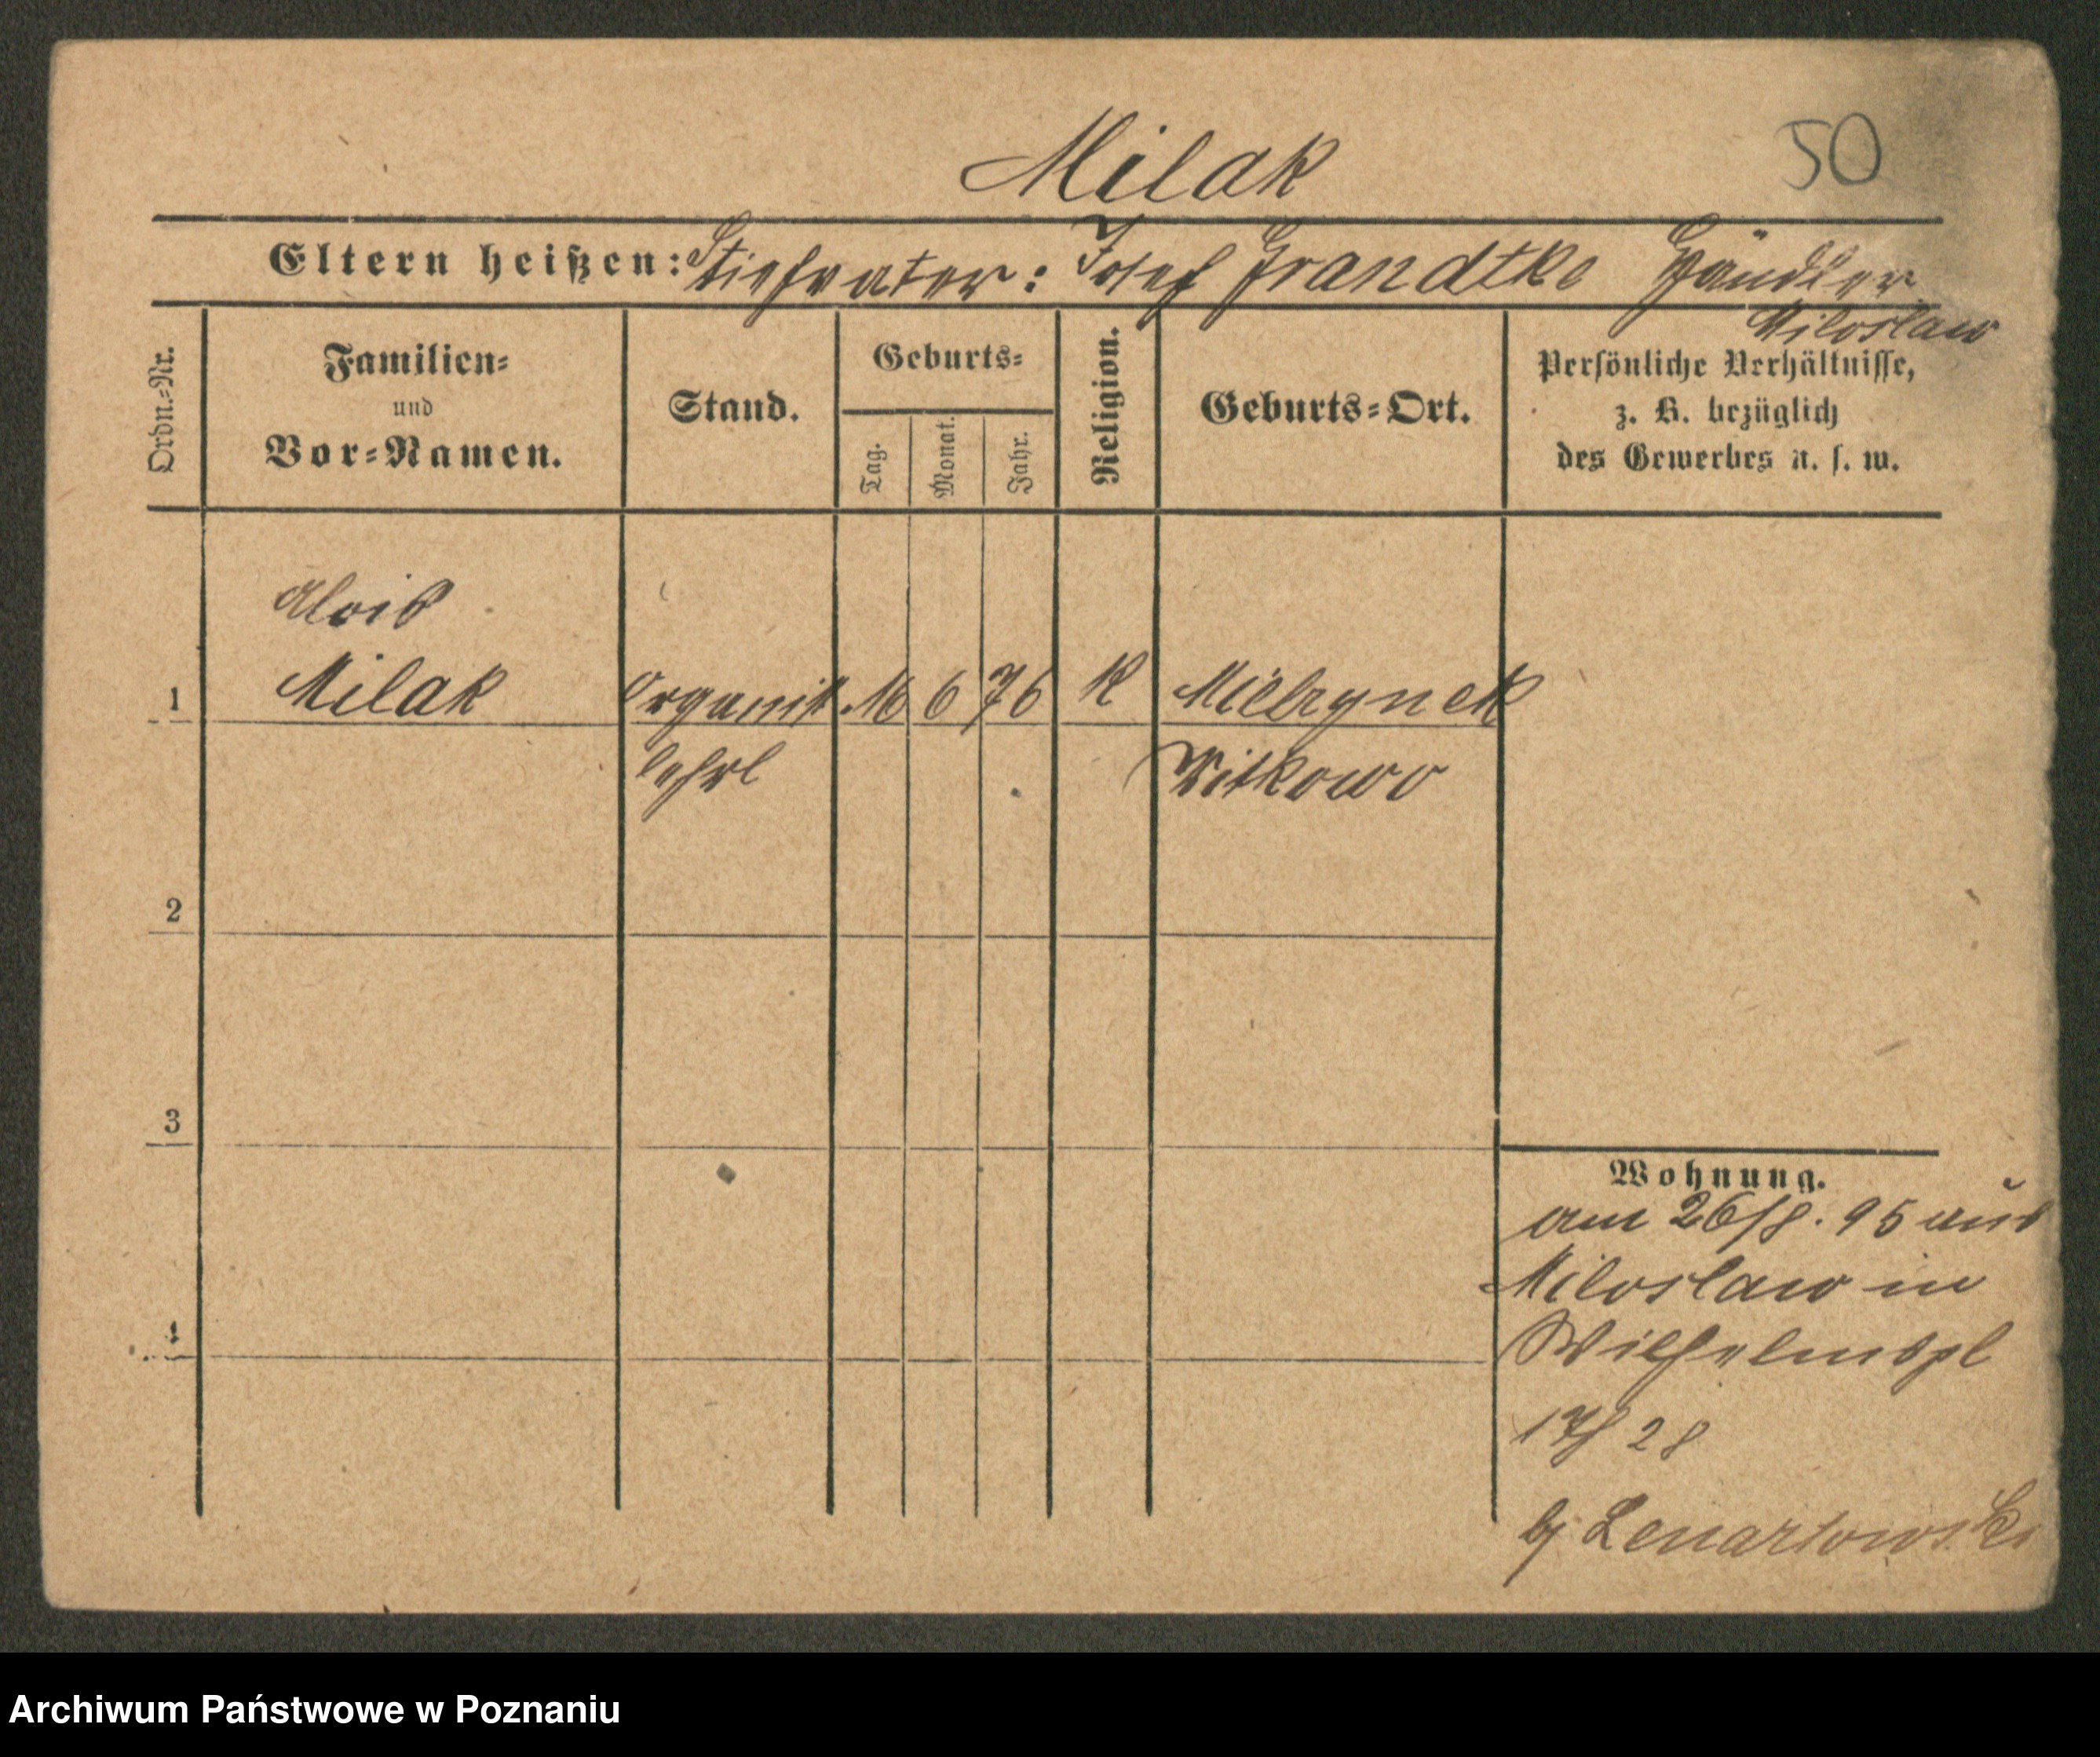 Milak
50
Eltern heißen: Stiefvater: Josef Grandtke Händler
Miloslaw
Ordn.-Nr.
Familien-
und
Vor-Namen.
Stand.
Geburts-
Tag.
Monat.
Jahr.
Religion.
Geburts-Ort.
Persönliche Verhältnisse,
z. B. bezüglich
des Gewerbes u. s. w.
Alois
1 Milak Organist 16 6 76 K Mielzynek
lehrl Witkowo
2
3
4
Wohnung.
am 26/8. 95 aus
Miloslaw in
Wilhelmspl
17/ 28
bj Lenartowski
Archiwum Państwowe w Poznaniu